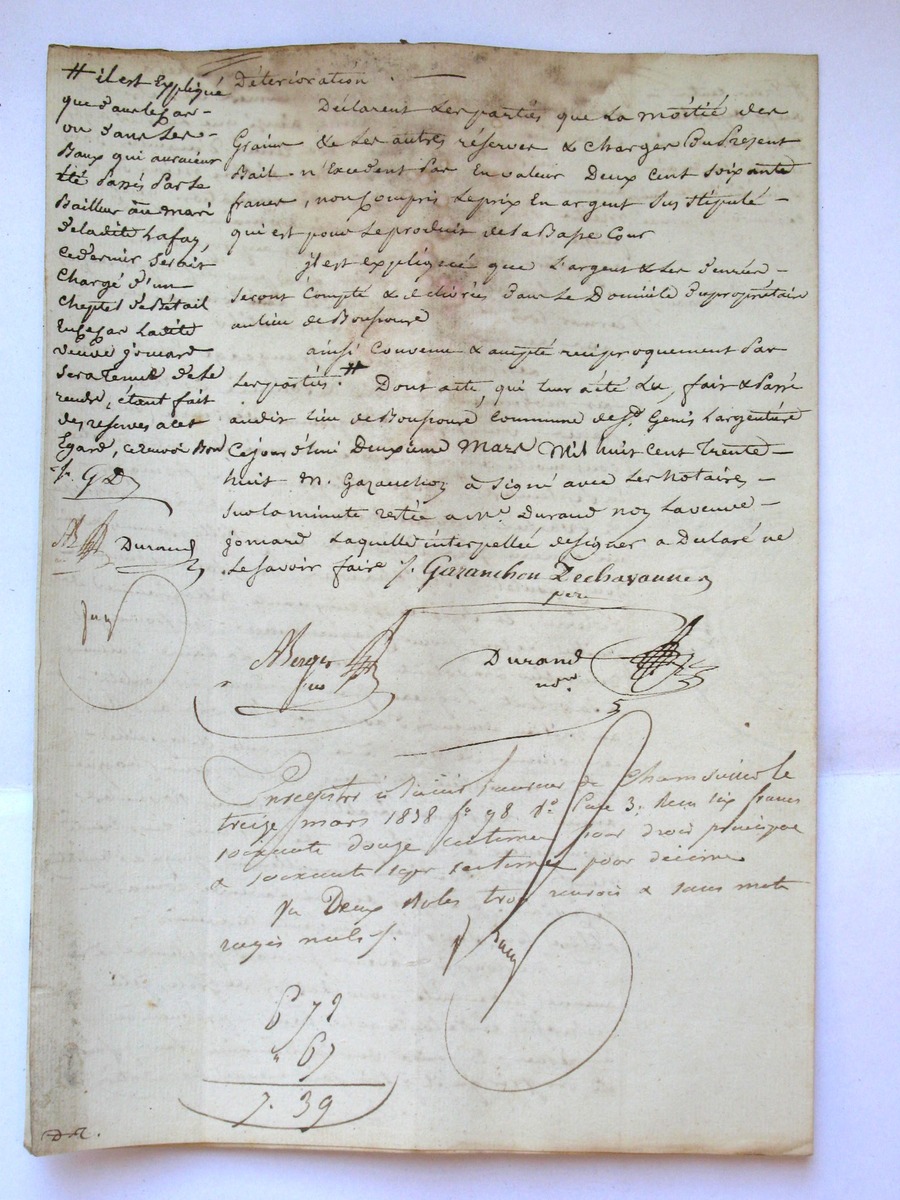 Détérioration . —
Déclarent Les parties que La moitié des
Grains & Les autres réserves & charges Du Présent
Bail n'Excedent Pas En valeur Deux Cent Soixante
francs, non Compris Le prix En argent Sus Stipulé –
qui est pour Le produit de La Basse Cour
il est expliqué que L'argent & Les Denrées –
Seront Compté & dans Le Domicile Du propriétaire
au lieu de
ainsi Convenu & accepté réciproquement Par
Les parties. # Dont acte, qui leur a été Lu, fait & Passé
audit Lieu de Commune de St. Genis L'argentière
Ce jourd'hui Deuxième Mars Mil huit Cent Trente –
huit M. Garanchon a Signé avec Les Notaires –
Sur La minute restée a Me. Durand La veuve –
jomard Laquelle interpellée de Signer a Déclaré ne
Le Savoir faire /. Garanchon Dechavanne
père
ABerger
Durand
nore
# il est Expliqué
que dans Le Cas –
où Dans Les –
Baux qui auraient
été Passés Par Le
Bailleur au mari
de Ladite Lafay,
ce dernier Serait
Chargé d'un
Cheptel de Bétail
Ladite
veuve jomard
Sera Tenue de Le
rendre, étant fait
des reserves a cet
Egard, ce renvoi Bon
/. G D
AB Durand
Enregistré à Saint Laurent de Chamousset le
treize mars 1838 fo 98 Vo Case 3. Reçu Six francs
soixante douze centimes pour droit principal
& soixante sept centimes pour décime
Deux Roles trois renvois & sans mots
rayés nuls /.
6 72
" 67
7. 39